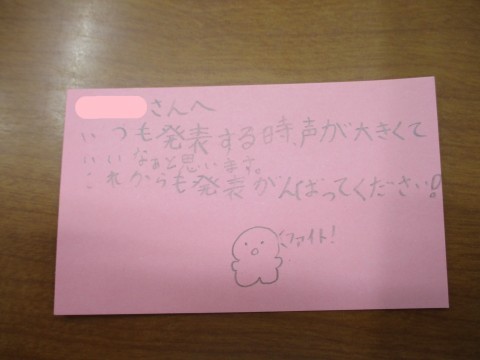 さんへ
いつも発表する時、声が大きくて
いいなぁと思います。
これからも発表がんばってください!
ファイト!